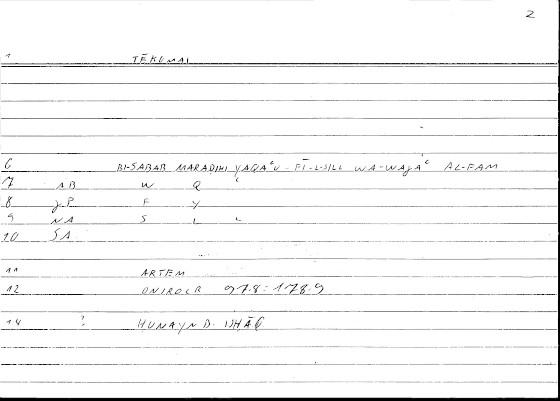 2
1 TĒKOMAI
6 BI-SABAB MARADIHI YAQAʿU - FĪ-L-SILL WA-WAJAʿ AL-FAM
7 AB W Q ʿ
8 J.P F Y
9 NA S L L
10 SA
11 ARTEM
12 ONIROCR 97.8 : 178.9
14 ? HUNAYN B. ISHĀQ